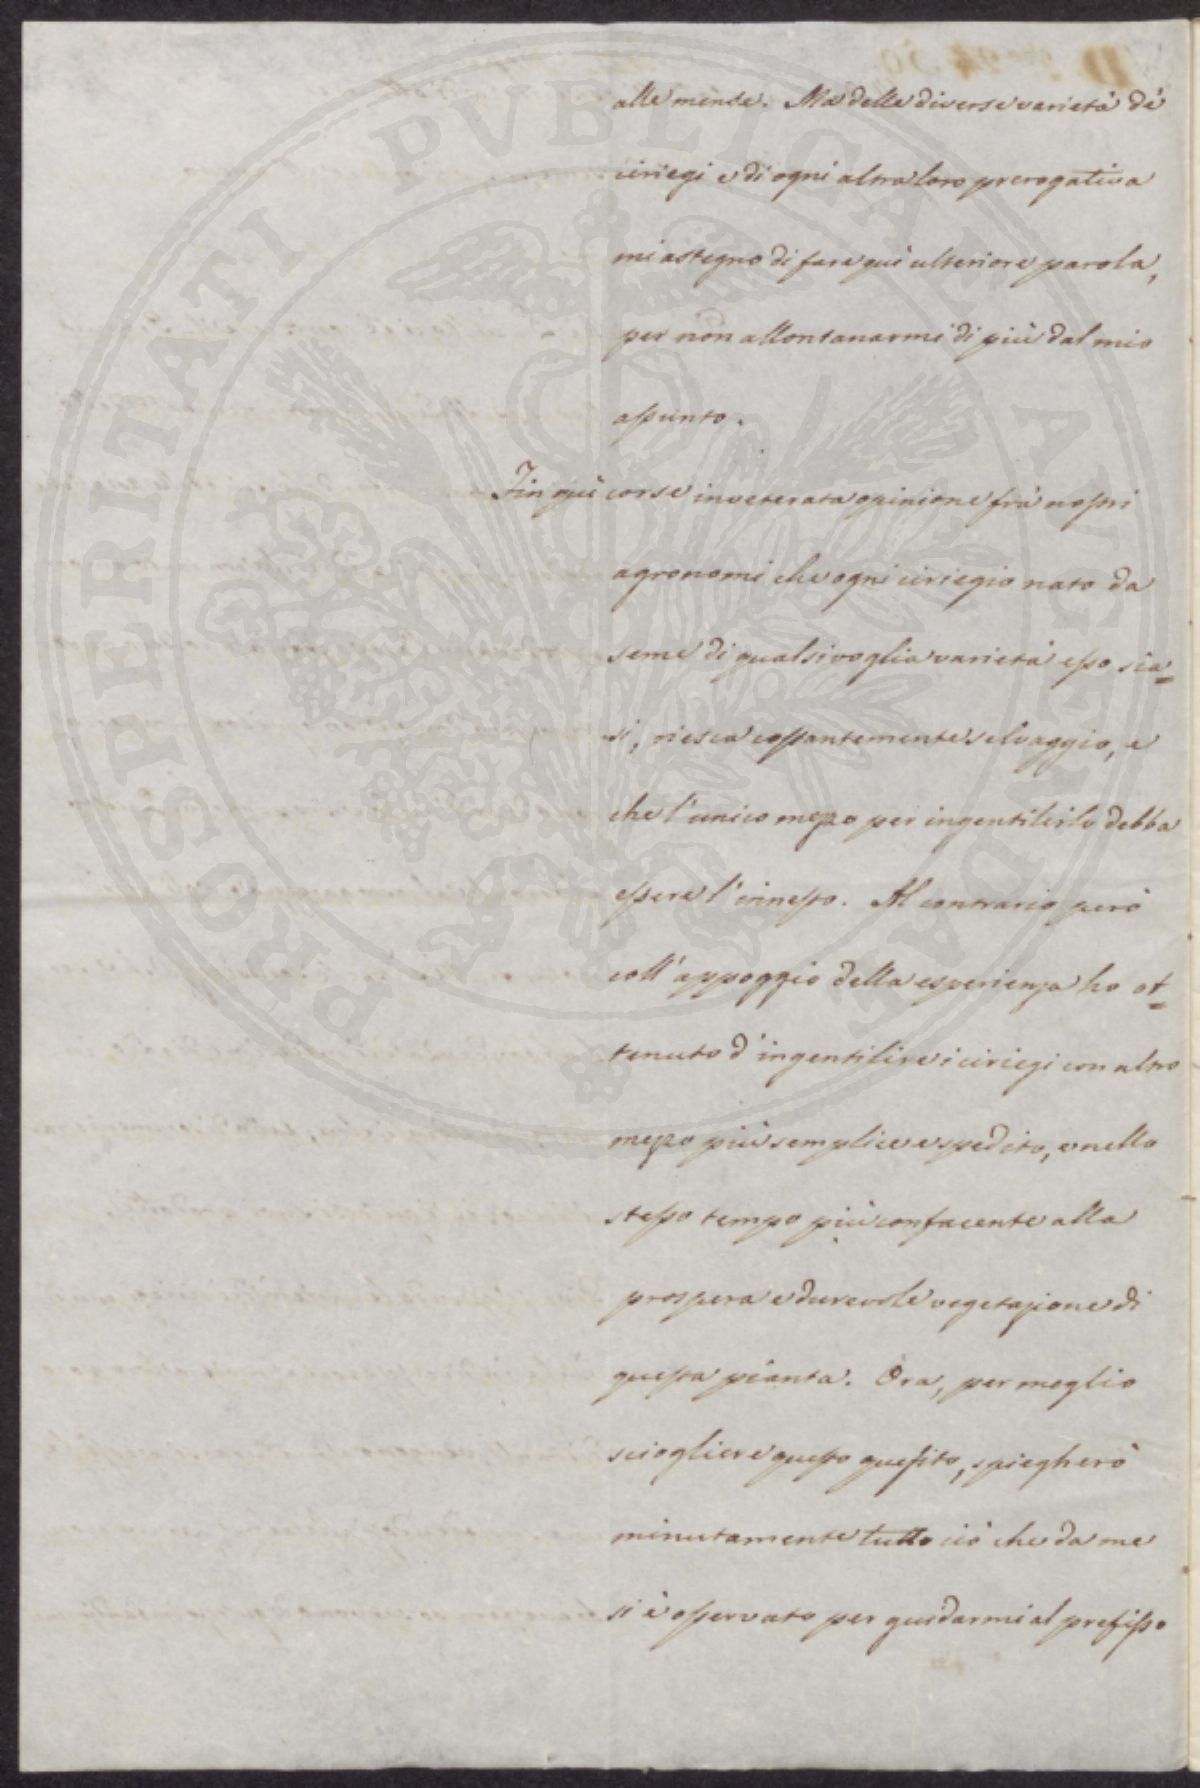 alle mense. Ma delle diverse varietà de'
ciriegi e di ogni altra loro prerogativa
mi astegno di fare quì ulteriore parola,
per non allontanarmi di più dal mio
assunto.
Fin quì corse inveterata opinione frà nostri
agronomi che ogni ciriegio nato da
seme di qualsivoglia varietà esso sia=
si, riesca costantemente selvaggio, e
che l'unico mezzo per ingentilirlo debba
essere l'innesto. Al contrario però
coll'appoggio della esperienza ho ot=
tenuto d'ingentilire i ciriegi con altro
mezzo più semplice e spedito, e nello
stesso tempo più confacente alla
prospera e durevole vegetazione di
questa pianta. Ora, per meglio
sciogliere questo quesito, spiegherò
minutamente tutto ciò che da me
si è osservato per guidarmi al prefisso
PROSPERITATI PVBLICAE AVGENDAE